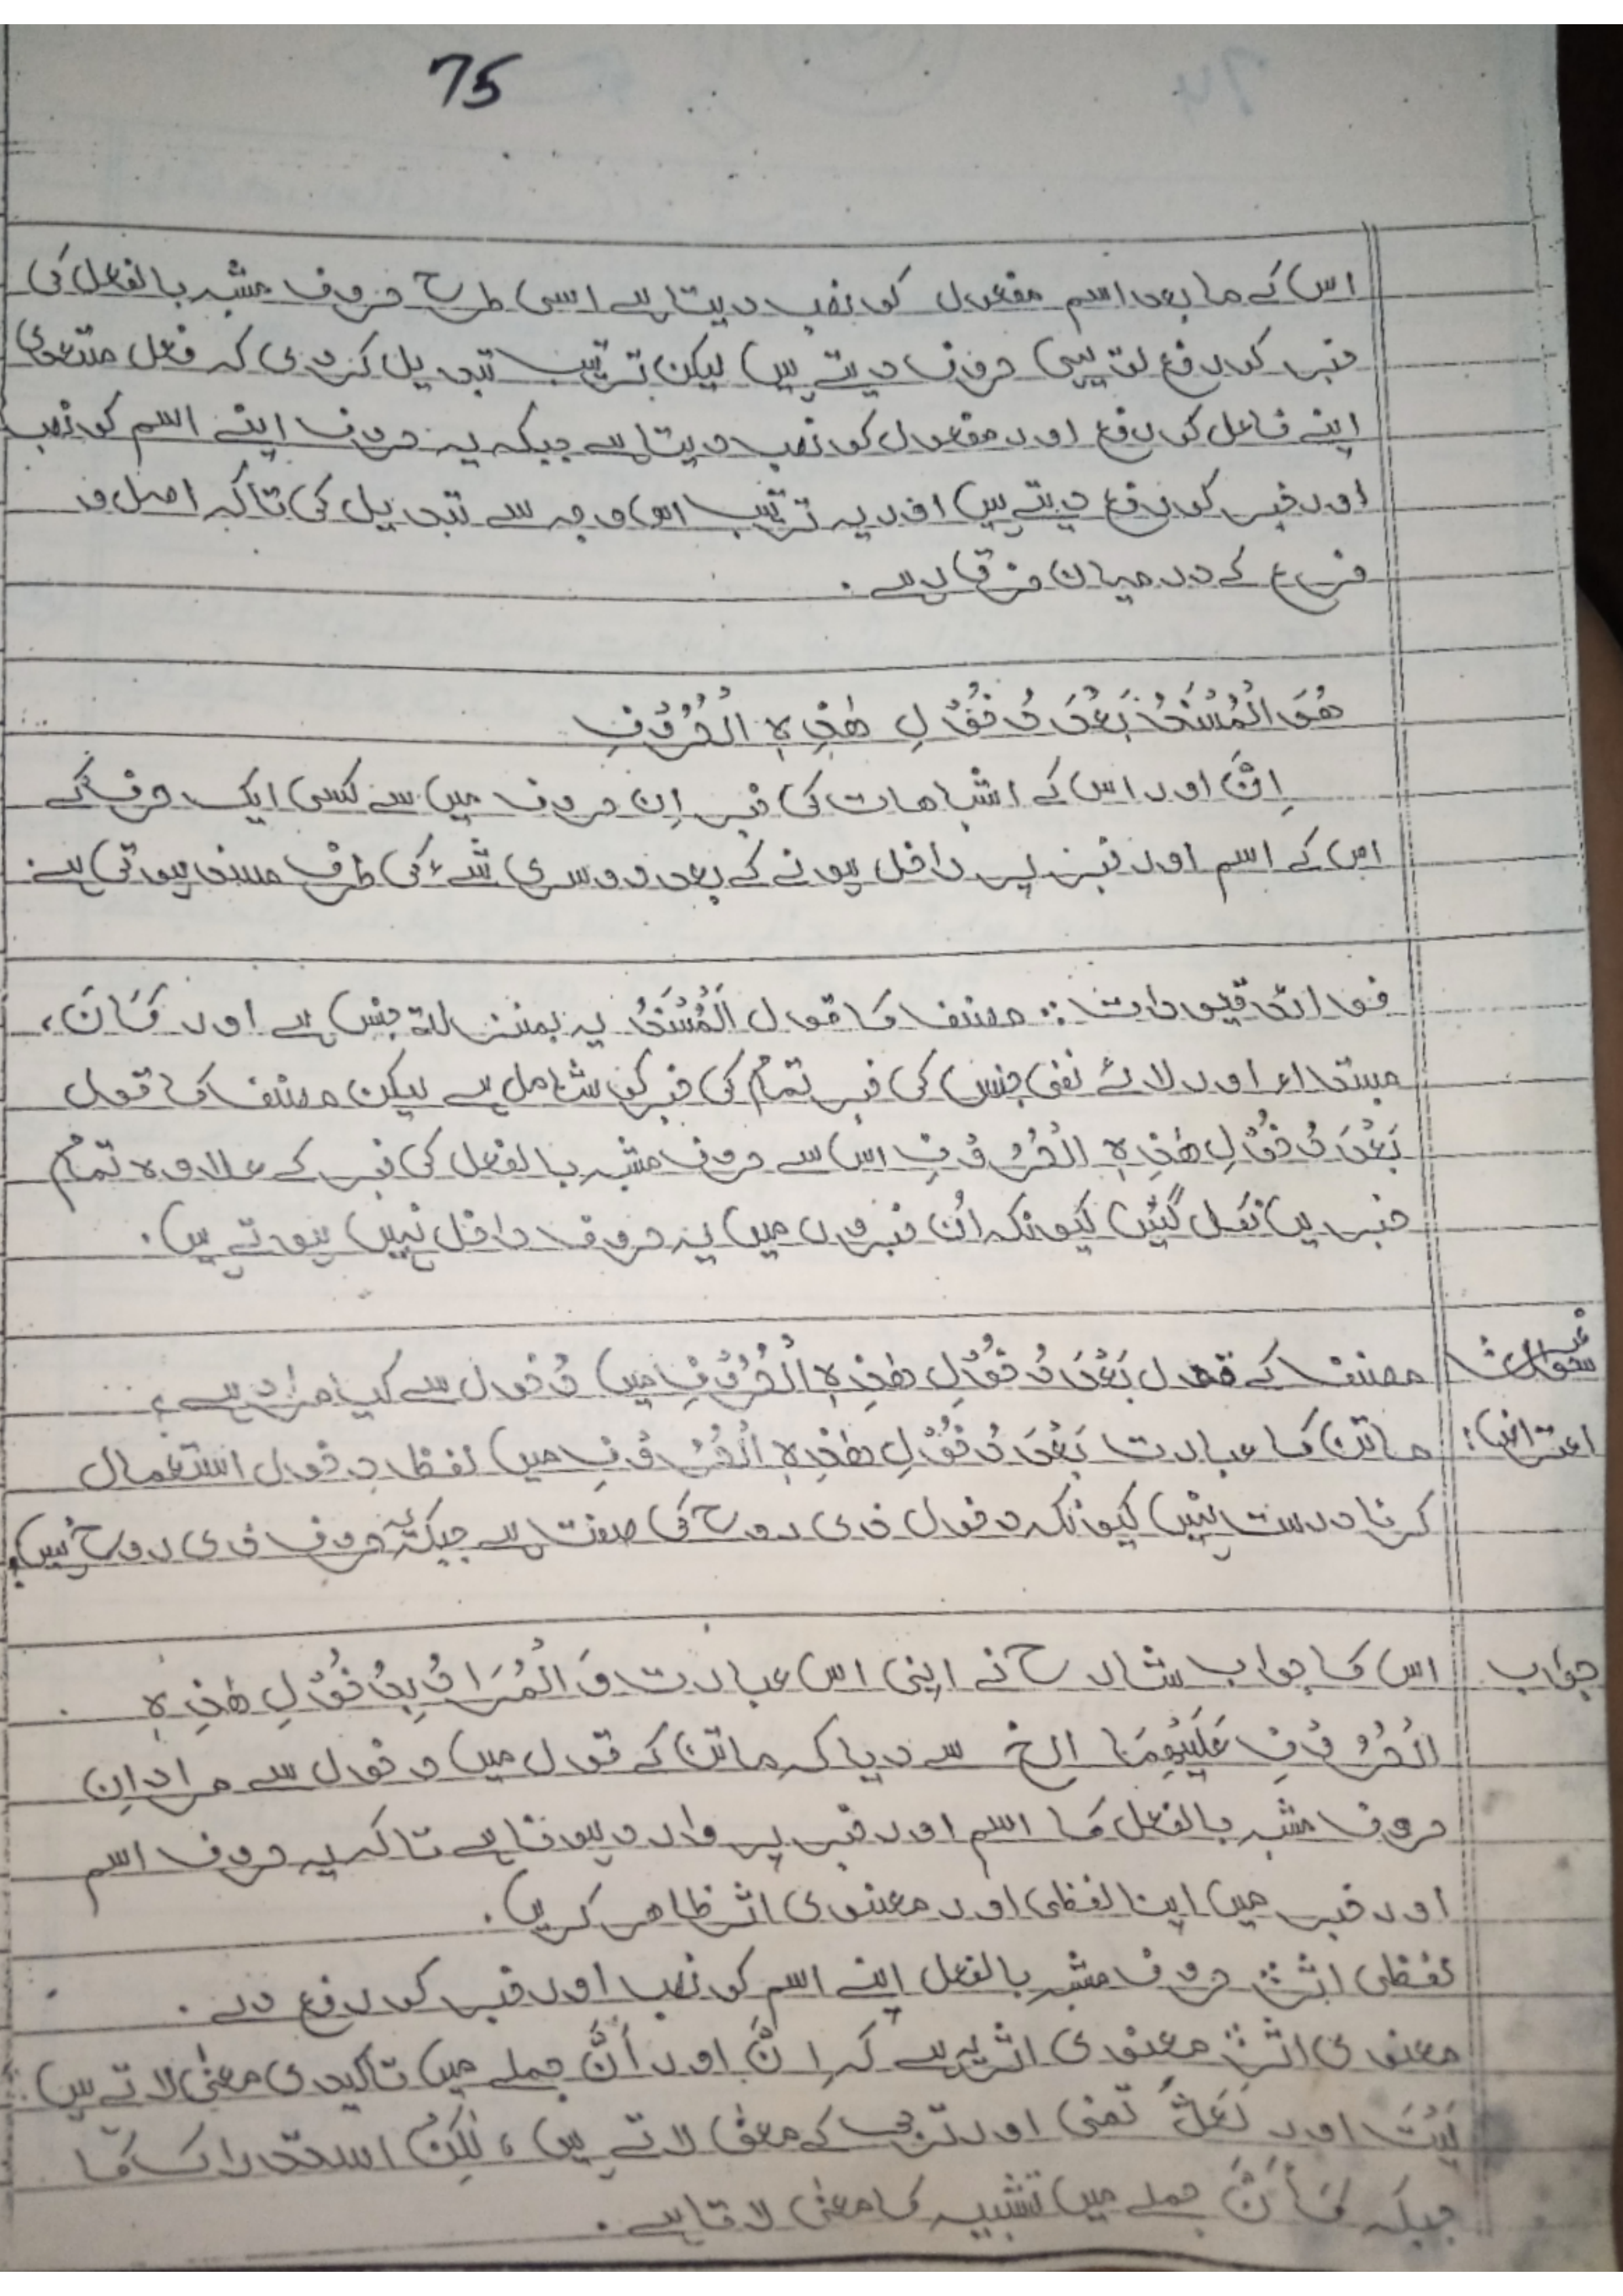 75
اس کے ما بعد اسم مفعول کو نصب دیتا ہے اسی طرح حروف مشبہ بالفعل کی
خبر کو رفع تو یہی حروف دیتے ہیں لیکن ترتیب تبدیل کر دی کہ فعل متعدی
اپنے فاعل کو رفع اور مفعول کو نصب دیتا ہے جبکہ یہ حروف اپنے اسم کو نصب
اور خبر کو رفع دیتے ہیں اور یہ ترتیب اس وجہ سے تبدیل کی تاکہ اصل و
فرع کے درمیان فرق رہے ۔
هُوَ الْمُسْنَدُ بَعْدَ دُخُوْلِ هٰذِهِ الْحُرُوْفِ
اِنَّ اور اس کے اشباھات کی خبر اِن حروف میں سے کسی ایک حرف کے
اس کے اسم اور خبر پر داخل ہونے کے بعد دوسری شے کی طرف مسند ہوتی ہے ۔
فوائد قیودات : مصنف کا قول اَلْمُسْنَدُ یہ بمنزلۃ جنس ہے اور کَانَ،
مبتداء اور لائے نفی جنس کی خبر تمام کی خبر کو شامل ہے لیکن مصنف کا قول
بَعْدَ دُخُوْلِ هٰذِهِ الْحُرُوْفِ اس سے حروف مشبہ بالفعل کی خبر کے علاوہ تمام
خبریں نکل گئیں کیونکہ اُن خبروں میں یہ حروف داخل نہیں ہوتے ہیں ۔
سوال مصنف کے قول بَعْدَ دُخُوْلِ هٰذِهِ الْحُرُوْفِ میں دُخول سے کیا مراد ہے ؟
اعتراض: ماتن کا عبارت بَعْدَ دُخُوْلِ هٰذِهِ الْحُرُوْفِ میں لفظ دخول استعمال
کرنا درست نہیں کیونکہ دخول ذی روح کی صفت ہے جبکہ یہ حروف ذی روح نہیں
جواب اس کا جواب شارح نے اپنی اس عبارت وَ الْمُرَادُ بِدُخُوْلِ هٰذِهِ
الْحُرُوْفِ عَلَيْهِمَا الخ سے دیا کہ ماتن کے قول میں دخول سے مراد اِن
حروف مشبہ بالفعل کا اسم اور خبر پر وارد ہونا ہے تاکہ یہ حروف اسم
اور خبر میں اپنا لفظی اور معنوی اثر ظاھر کریں ۔
لفظی اثر: حروف مشبہ بالفعل اپنے اسم کو نصب اور خبر کو رفع دے ۔
معنوی اثر: معنوی اثر یہ ہے کہ اِنَّ اور اَنَّ جملے میں تاکیدی معنیٰ لاتے ہیں :
لَيْتَ اور لَعَلَّ تمنی اور ترجی کے معنیٰ لاتے ہیں ، لٰكِنَّ استدراک کا
جبکہ كَأَنَّ جملے میں تشبیہ کا معنی لاتا ہے ۔